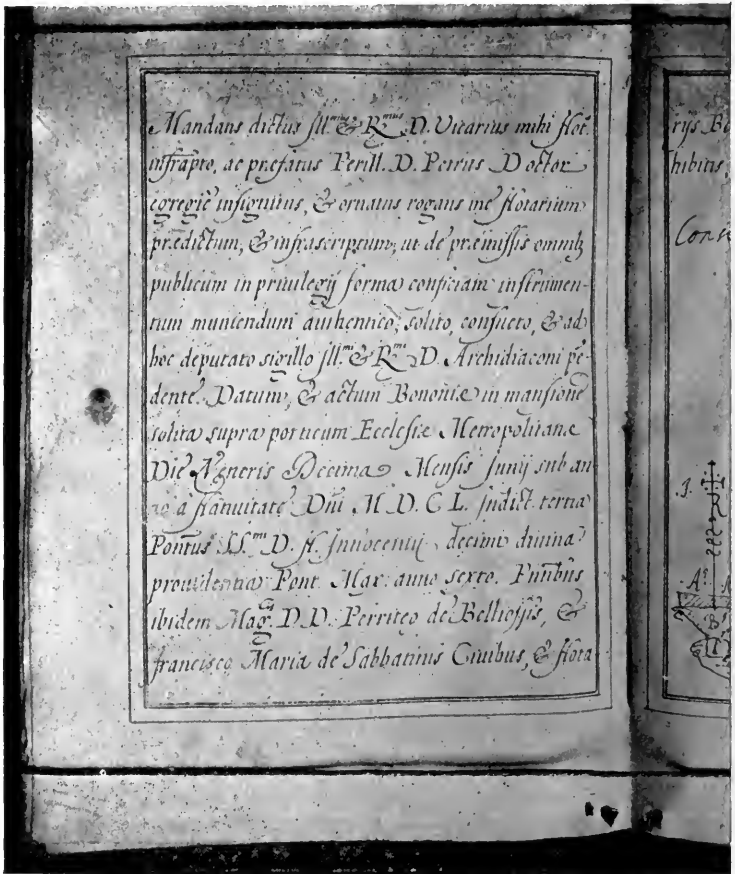 Mandans dictus Ill.mus & R.mus D. Vicarius mihi Not.
infrapto, ac prefatus Perill. D. Petrus Doctor
egregiè insignitus, & ornatus rogans me Notarium
prædictum, & infrascriptum, ut de præmissis omnib
publicum in privilegij forma conficiam instrumen-
tum muniendum authentico, solito, consueto, & ad
hoc deputato sigillo Ill.mi & R.mi D. Archidiaconi pē-
dente. Datum, & actum Bononiæ in mansione
solita supra porticum Ecclesiæ Metropolitanæ
Die Veneris Decima Mensis Junij sub an-
no à Nativitate Dñi M.D.C L. Indict. tertia
Pontus SS.mi D. N. Innocentij decimi divina
providentia Pont. Max. anno sexto. Pntibus
ibidem Mag.cis D.D. Perriteo de Belliossis, &
Francisco Maria de Sabbatinis Civibus, & Nota
rijs Bo
hibitis
J.
A
B